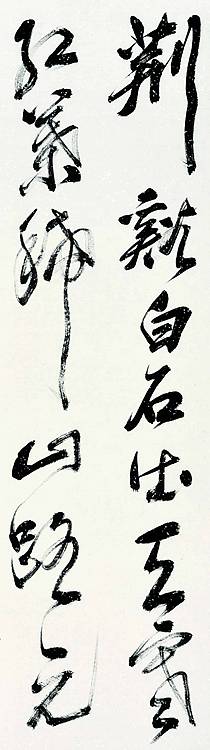 荊谿白石出天寒
紅葉稀山路元